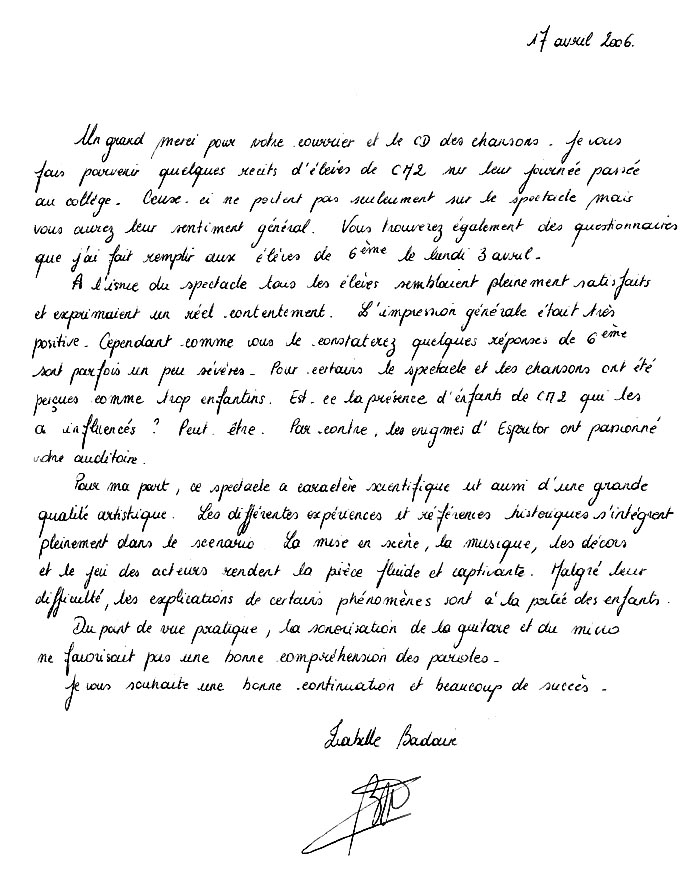 17 avril 2006.
Un grand merci pour votre courrier et le CD des chansons. Je vous
fais parvenir quelques recits d'élèves de CM2 sur leur journée passée
au collège. Ceux-ci ne portent pas seuleument sur le spectacle mais
vous aurez leur sentiment général. Vous trouverez également des questionnaires
que j'ai fait remplir aux élèves de 6ème le lundi 3 avril.
A l'issue du spectacle tous les élèves semblaient pleinement satisfaits
et exprimaient un réel contentement. L'impression générale était très
positive. Cependant comme vous le constaterez quelques réponses de 6ème
sont parfois un peu sévères. Pour certains le spectacle et les chansons ont été
perçues comme trop enfantins. Est-ce la présence d'enfants de CM2 qui les
a influencés ? Peut être. Par contre, les enigmes d'Esprutor ont passionné
votre auditoire.
Pour ma part, ce spectacle a caractère scientifique est aussi d'une grande
qualité artistique. Les différentes expériences et références historiques s'intègrent
pleinement dans le scenario. La mise en scène, la musique, les décors
et le jeu des acteurs rendent la pièce fluide et captivante. Malgré leur
difficulté, les explications de certains phénomènes sont à la portée des enfants.
Du point de vue pratique, la sonorisation de la guitare et du micro
ne favorisait pas une bonne compréhension des paroles.
Je vous souhaite une bonne continuation et beaucoup de succès.
Isabelle